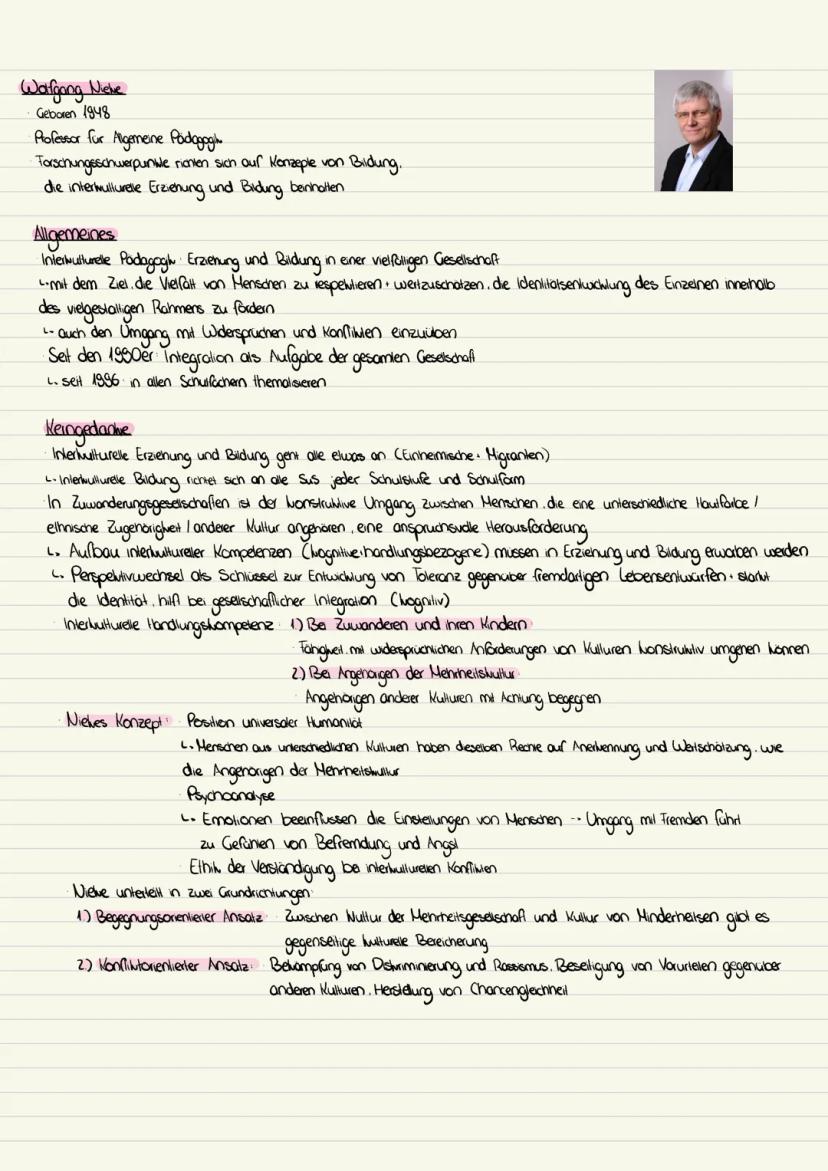 Wolfgang Nieke
· Geboren 1948
· Professor für Allgemeine Pädagogik
· Forschungsschwerpunkte richten sich auf Konzepte von Bildung,
die interkulturelle Erziehung und Bildung beinhalten
Allgemeines
· Interkulturelle Pädagogik: Erziehung und Bildung in einer vielfältigen Gesellschaft
↳ mit dem Ziel, die Vielfalt von Menschen zu respektieren + wertzuschätzen, die Identitätsentwicklung des Einzelnen innerhalb
des vielgestaltigen Rahmens zu fördern
↳ auch den Umgang mit Widersprüchen und Konflikten einzuüben
· Seit den 1990er: Integration als Aufgabe der gesamten Gesellschaft
↳ seit 1996: in allen Schulfächern thematisieren
Kerngedanke
· Interkulturelle Erziehung und Bildung geht alle etwas an (Einheimische + Migranten)
↳ Interkulturelle Bildung richtet sich an alle SuS jeder Schulstufe und Schulform
· In Zuwanderungsgesellschaften ist der konstruktive Umgang zwischen Menschen, die eine unterschiedliche Hautfarbe /
ethnische Zugehörigkeit / anderer Kultur angehören, eine anspruchsvolle Herausforderung
↳ Aufbau interkultureller Kompetenzen (kognitive + handlungsbezogene) müssen in Erziehung und Bildung erworben werden
↳ Perspektivwechsel als Schlüssel zur Entwicklung von Toleranz gegenüber fremdartigen Lebensentwürfen + stärkt
die Identität, hilft bei gesellschaftlicher Integration (kognitiv)
· Interkulturelle Handlungskompetenz: 1) Bei Zuwanderen und ihren Kindern
· Fähigkeit, mit widersprüchlichen Anforderungen von Kulturen konstruktiv umgehen können
2) Bei Angehörigen der Mehrheitskultur
· Angehörigen anderer Kulturen mit Achtung begegnen
· Niekes Konzept: · Position universaler Humanität
↳ Menschen aus unterschiedlichen Kulturen haben dieselben Rechte auf Anerkennung und Wertschätzung, wie
die Angehörigen der Mehrheitskultur
· Psychoanalyse
↳ Emotionen beeinflussen die Einstellungen von Menschen -> Umgang mit Fremden führt
zu Gefühlen von Befremdung und Angst
· Ethik der Verständigung bei interkulturellen Konflikten
· Nieke unterteilt in zwei Grundrichtungen:
1.) Begegnungsorientierter Ansatz: Zwischen Kultur der Mehrheitsgesellschaft und Kultur von Minderheitsen gibt es
gegenseitige kulturelle Bereicherung
2.) Konfliktorientierter Ansatz: Bekämpfung von Diskriminierung und Rassismus, Beseitigung von Vorurteilen gegenüber
anderen Kulturen, Herstellung von Chancengleichheit